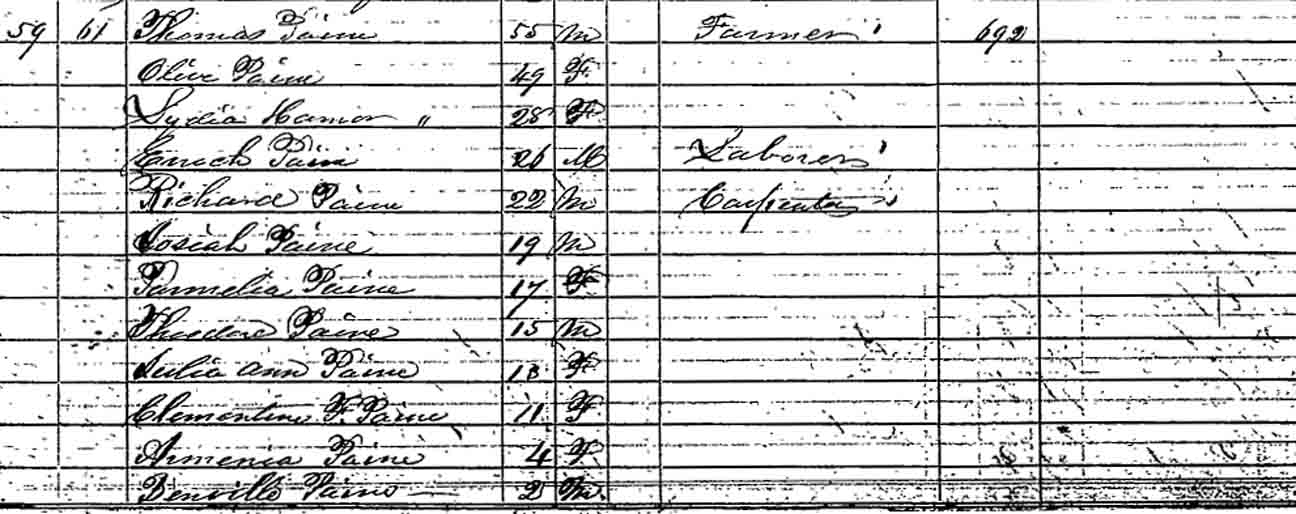 59 61 Thomas Paine 55 M Farmer 692
Olive Paine 49 F
Lydia Hamor " 28 F
Enoch Paine 26 M Laborer
Richard Paine 22 M Carpenter
Josiah Paine 19 M
Parmelia Paine 17 F
Theodore Paine 15 M
Julia Ann Paine 13 F
Clementine F. Paine 11 F
Armenia Paine 4 F
Benville Paine 2 M